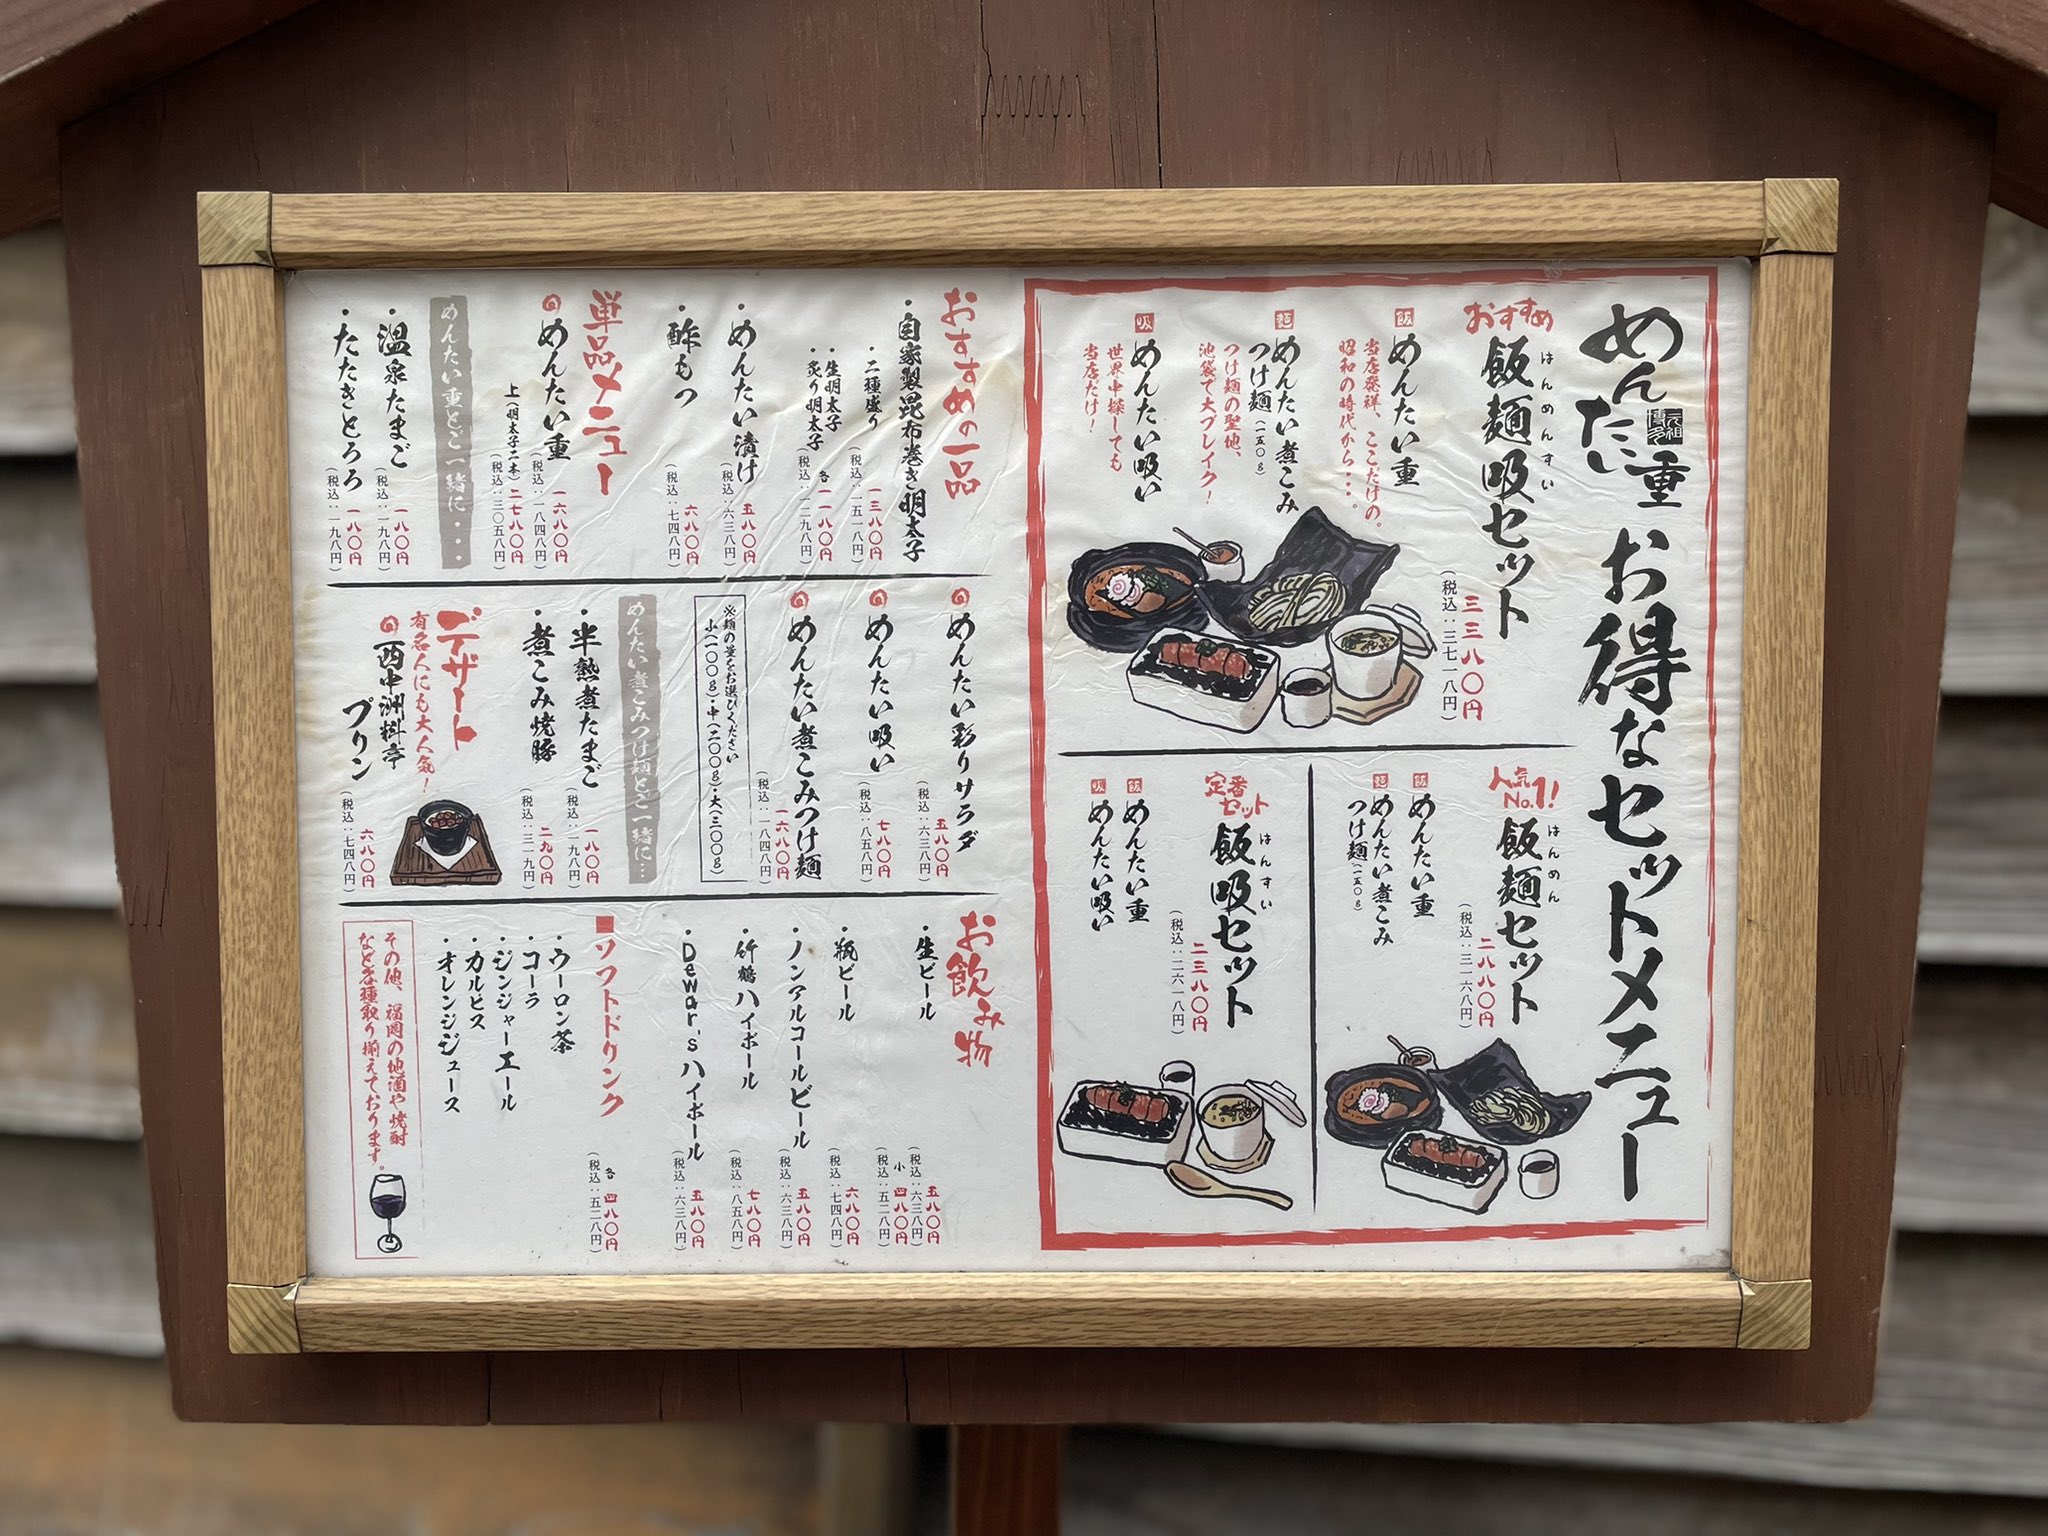 めんたい重
元祖
博多
お得なセットメニュー
おすすめ
飯麺吸セット
はんめんすい
三三八〇円
(税込:三七一八円)
飯 めんたい重
当店発祥、ここだけの。
昭和の時代から・・・・
麺 めんたい煮こみ
つけ麺(一五〇g)
つけ麺の聖地、
池袋で大ブレイク!
吸 めんたい吸い
世界中探しても
当店だけ!
人気No.1!
飯麺セット
はんめん
二八八〇円
(税込:三一六八円)
飯 めんたい重
麺 めんたい煮こみ
つけ麺(一五〇g)
定番セット
飯吸セット
はんすい
二三八〇円
(税込:二六一八円)
飯 めんたい重
吸 めんたい吸い
おすすめの一品
・自家製昆布巻き明太子
・二種盛り
一三八〇円
(税込:一五一八円)
・生明太子
・炙り明太子
各 一一八〇円
(税込:一二九八円)
・めんたい漬け
五八〇円
(税込:六三八円)
・酢もつ
六八〇円
(税込:七四八円)
単品メニュー
めんたい重
一六八〇円
(税込:一八四八円)
上(明太子二本) 二七八〇円
(税込:三〇五八円)
めんたい重とご一緒に・・・
・温泉たまご
一八〇円
(税込:一九八円)
・たたきとろろ
一八〇円
(税込:一九八円)
めんたい彩りサラダ
五八〇円
(税込:六三八円)
めんたい吸い
七八〇円
(税込:八五八円)
めんたい煮こみつけ麺
一六八〇円
(税込:一八四八円)
※麺の量をお選びください
小(一〇〇g)・中(二〇〇g)・大(三〇〇g)
めんたい煮こみつけ麺とご一緒に…
・半熟煮たまご
一八〇円
(税込:一九八円)
・煮こみ焼豚
二九〇円
(税込:三一九円)
デザート
有名人にも大人気!
西中洲料亭
プリン
六八〇円
(税込:七四八円)
お飲み物
・生ビール
五八〇円
(税込:六三八円)
小 四八〇円
(税込:五二八円)
・瓶ビール
六八〇円
(税込:七四八円)
・ノンアルコールビール
五八〇円
(税込:六三八円)
・竹鶴ハイボール
七八〇円
(税込:八五八円)
・Dewar'sハイボール
五八〇円
(税込:六三八円)
■ソフトドリンク
各 四八〇円
(税込:五二八円)
・ウーロン茶
・コーラ
・ジンジャーエール
・カルピス
・オレンジジュース
その他、福岡の地酒や焼酎
など各種取り揃えております。